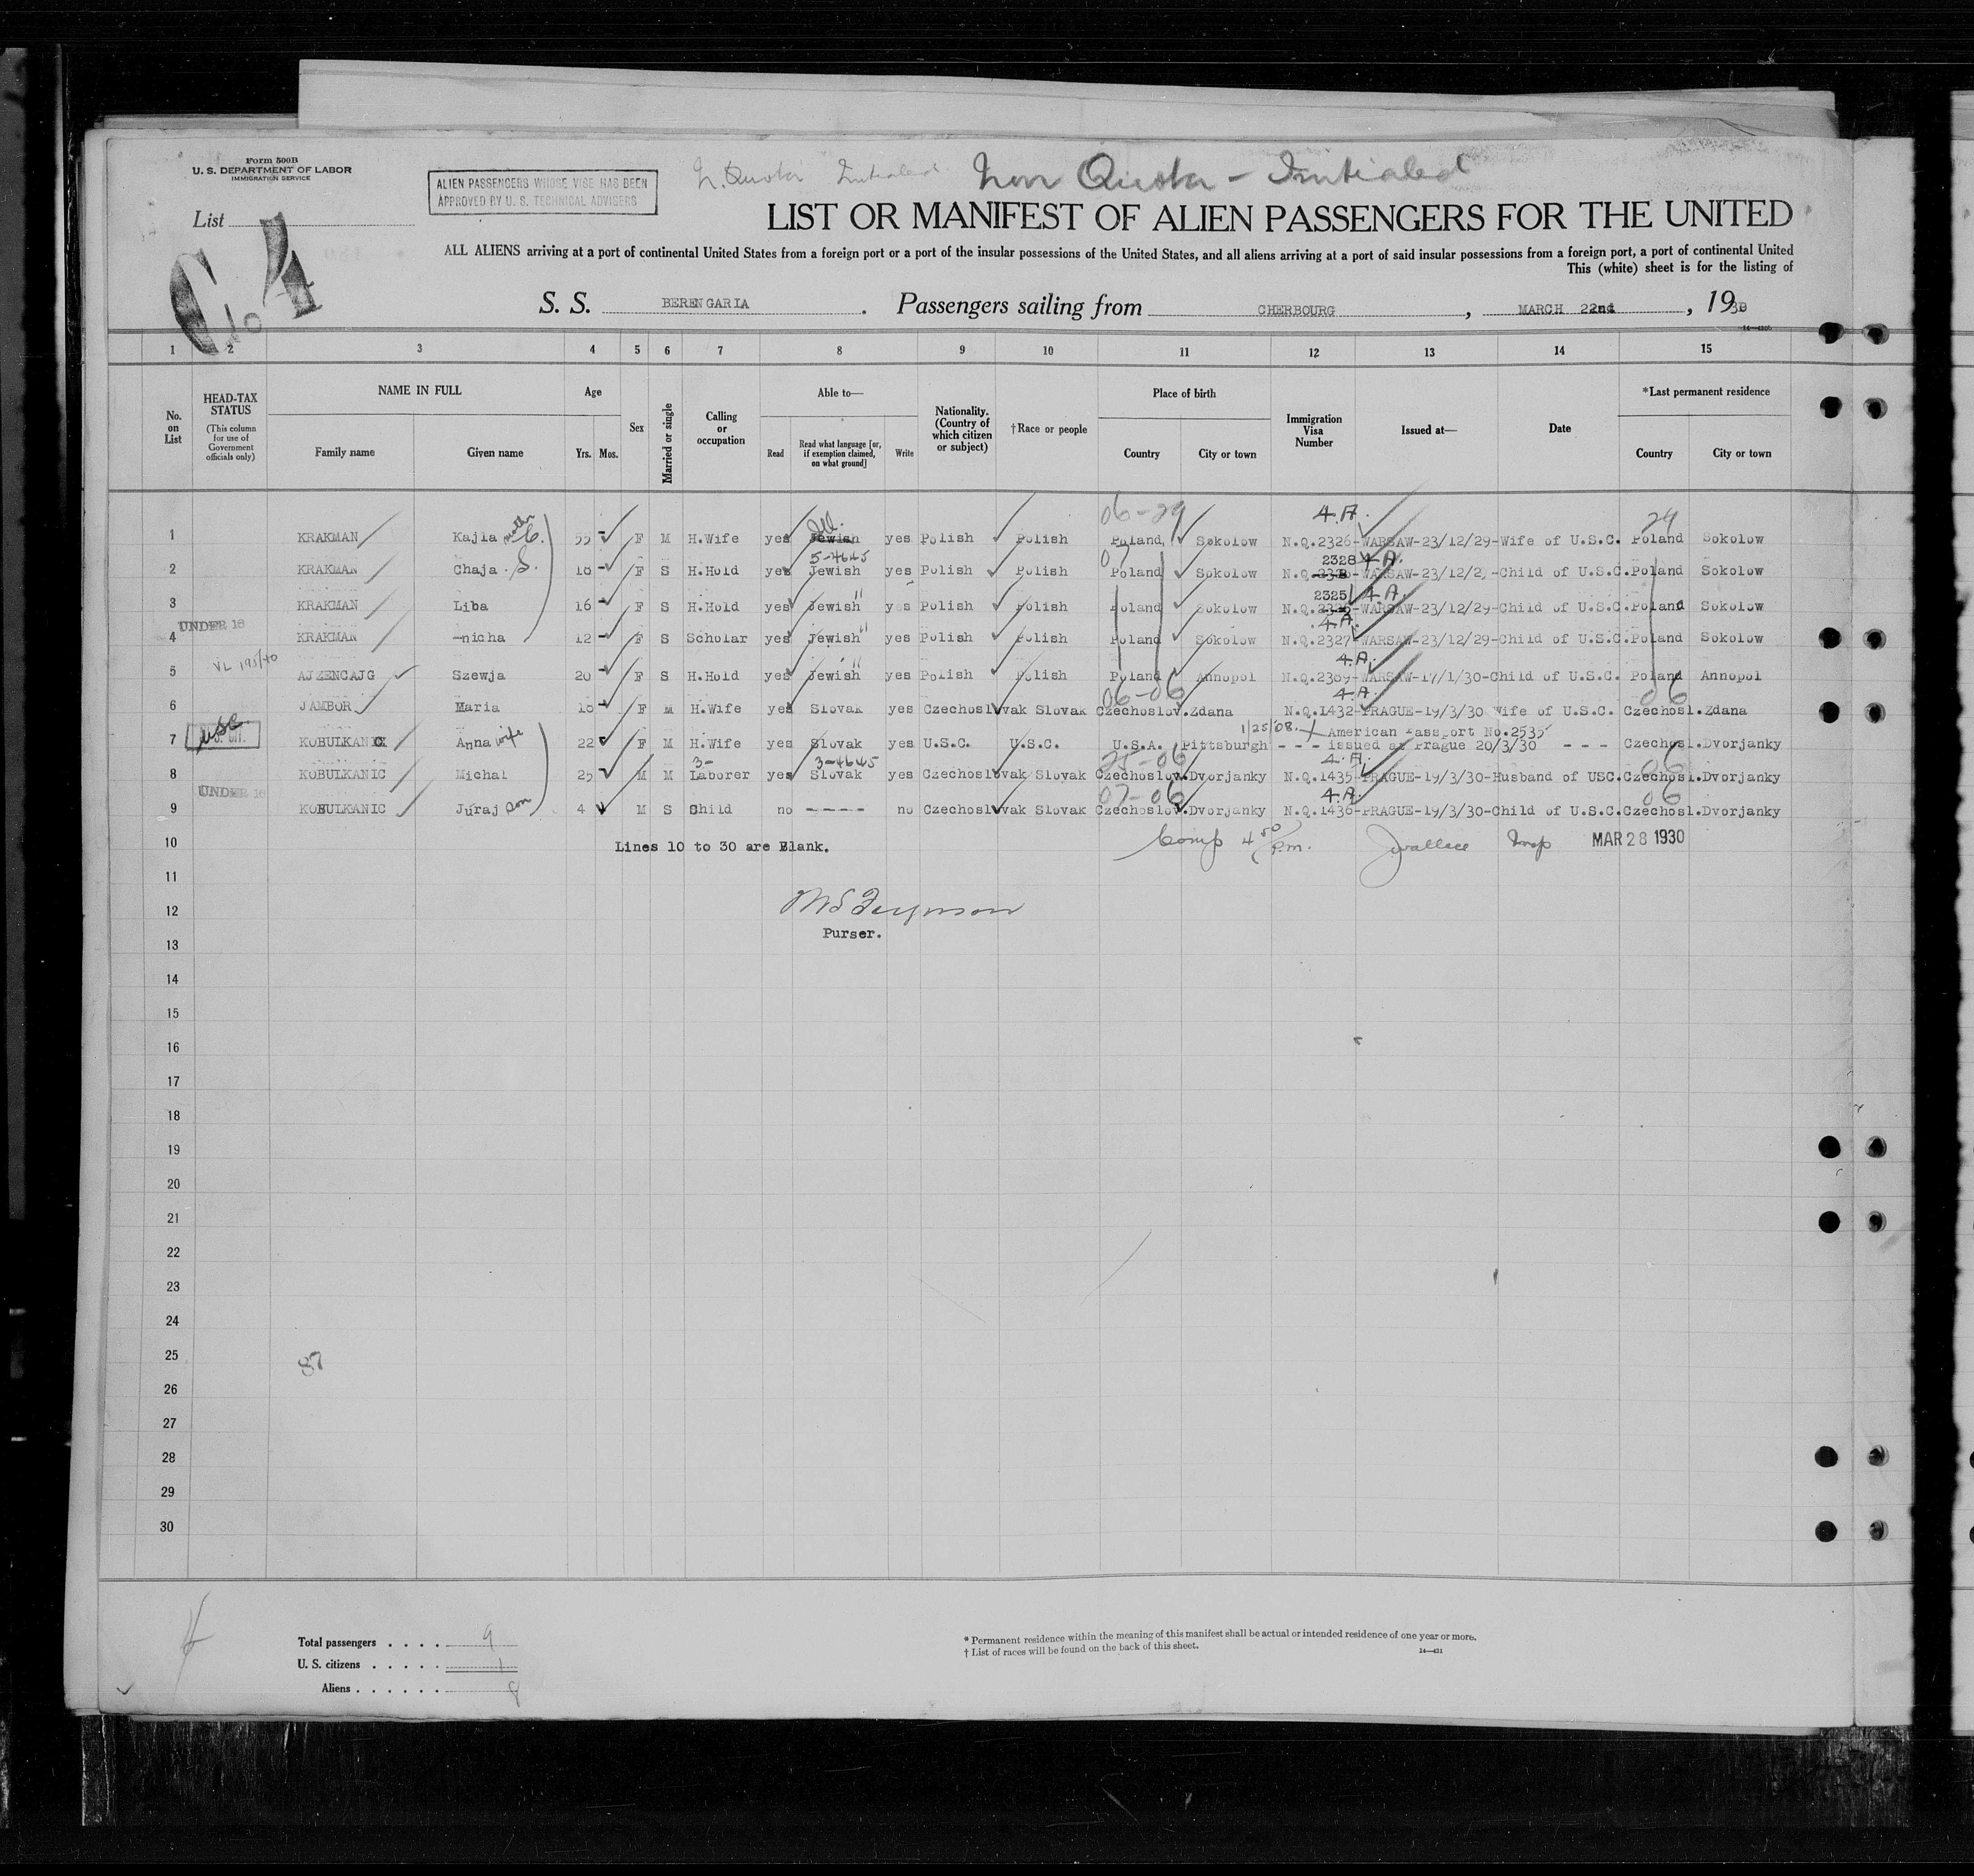 Form 500B
U. S. DEPARTMENT OF LABOR
IMMIGRATION SERVICE
List
64
10
ALIEN PASSENGERS WHOSE VISE HAS BEEN
APPROVED BY U. S. TECHNICAL ADVISERS
N. Quota Initialed Non Quota - Initialed
LIST OR MANIFEST OF ALIEN PASSENGERS FOR THE UNITED
ALL ALIENS arriving at a port of continental United States from a foreign port or a port of the insular possessions of the United States, and all aliens arriving at a port of said insular possessions from a foreign port, a port of continental United
This (white) sheet is for the listing of
S. S. BERENGARIA. Passengers sailing from CHERBOURG, MARCH 22nd, 1930
14—4205
1 2 3 4 5 6 7 8 9 10 11 12 13 14 15
No. on List
HEAD-TAX STATUS (This column for use of Government officials only)
NAME IN FULL
Family name Given name
Age
Yrs. Mos.
Sex
Married or single
Calling or occupation
Able to—
Read Read what language [or, if exemption claimed, on what ground] Write
Nationality. (Country of which citizen or subject)
†Race or people
Place of birth
Country City or town
Immigration Visa Number
Issued at—
Date
*Last permanent residence
Country City or town
06-29 4.A. 24
1 KRAKMAN Kajla mother 55 F M H.Wife yes Jewish yes Polish Polish Poland, Sokolow N.Q.2326-WARSAW-23/12/29-Wife of U.S.C. Poland Sokolow
5-4645 07 2328 4.A.
2 KRAKMAN Chaja S. 18 F S H.Hold yes Jewish yes Polish Polish Poland Sokolow N.Q. -WARSAW-23/12/2,-Child of U.S.C. Poland Sokolow
2325 4.A.
3 KRAKMAN Liba 16 F S H.Hold yes Jewish " yes Polish Polish Poland Sokolow N.Q. -WARSAW-23/12/29-Child of U.S.C. Poland Sokolow
UNDER 16 4.A.
4 KRAKMAN -nicha 12 F S Scholar yes Jewish " yes Polish Polish Poland Sokolow N.Q.2327-WARSAW-23/12/29-Child of U.S.C. Poland Sokolow
VL 195/40 4.A.
5 AJZENCAJG Szewja 20 F S H.Hold yes Jewish " yes Polish Polish Poland Annopol N.Q.2389-WARSAW-17/1/30-Child of U.S.C. Poland Annopol
06-06 4.A. 06
6 JAMBOR Maria 18 F M H.Wife yes Slovak yes Czechoslovak Slovak Czechoslov. Zdana N.Q.1432-PRAGUE-19/3/30 Wife of U.S.C. Czechosl. Zdana
USC 1/25/08. American Passport No.2535
7 KOBULKANIC Anna wife 22 F M H.Wife yes Slovak yes U.S.C. U.S.C. U.S.A. Pittsburgh - - - issued at Prague 20/3/30 - - - Czechosl. Dvorjanky
3- 3-4645 25-06 4.A. 06
8 KOBULKANIC Michal 25 M M Laborer yes Slovak yes Czechoslovak Slovak Czechoslov. Dvorjanky N.Q.1435-PRAGUE-19/3/30-Husband of USC. Czechosl. Dvorjanky
UNDER 16 07-06 4.A. 06
9 KOBULKANIC Juraj son 4 M S Child no ---- no Czechoslovak Slovak Czechoslov. Dvorjanky N.Q.1436-PRAGUE-19/3/30-Child of U.S.C. Czechosl. Dvorjanky
10 Lines 10 to 30 are Blank. Comp 4 50 P.m. J Wallace Insp MAR 28 1930
11
12
Purser.
13
14
15
16
17
18
19
20
21
22
23
24
25 87
26
27
28
29
30
Total passengers . . . . 9
U. S. citizens . . . . . 1
Aliens . . . . . . 8
* Permanent residence within the meaning of this manifest shall be actual or intended residence of one year or more.
† List of races will be found on the back of this sheet.
14—431